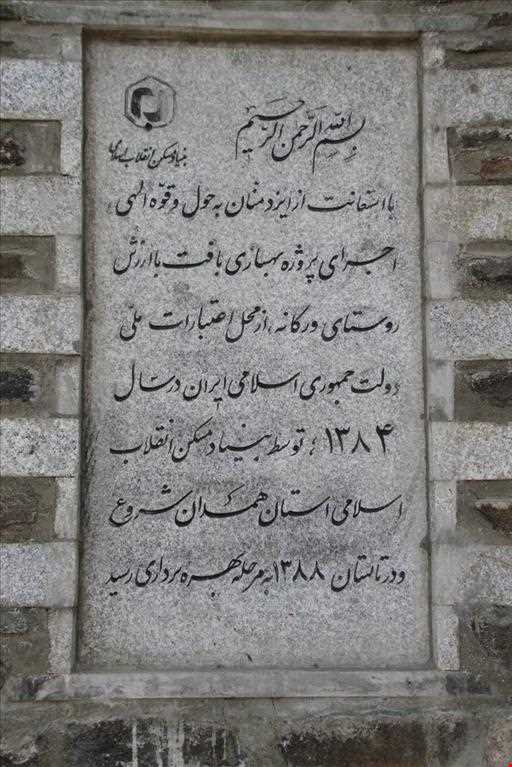 بسم الله الرحمن الرحیم
بنیاد مسکن انقلاب اسلامی
با استعانت از ایزد منان به حول و قوّه الهی،
اجرای پروژه بهسازی بافت با ارزش
روستای ورکانه، از محل اعتبارات ملّی
دولت جمهوری اسلامی ایران در سال
۱۳۸۴، توسط بنیاد مسکن انقلاب
اسلامی استان همدان شروع
و در تابستان ۱۳۸۸ به مرحله بهره برداری رسید